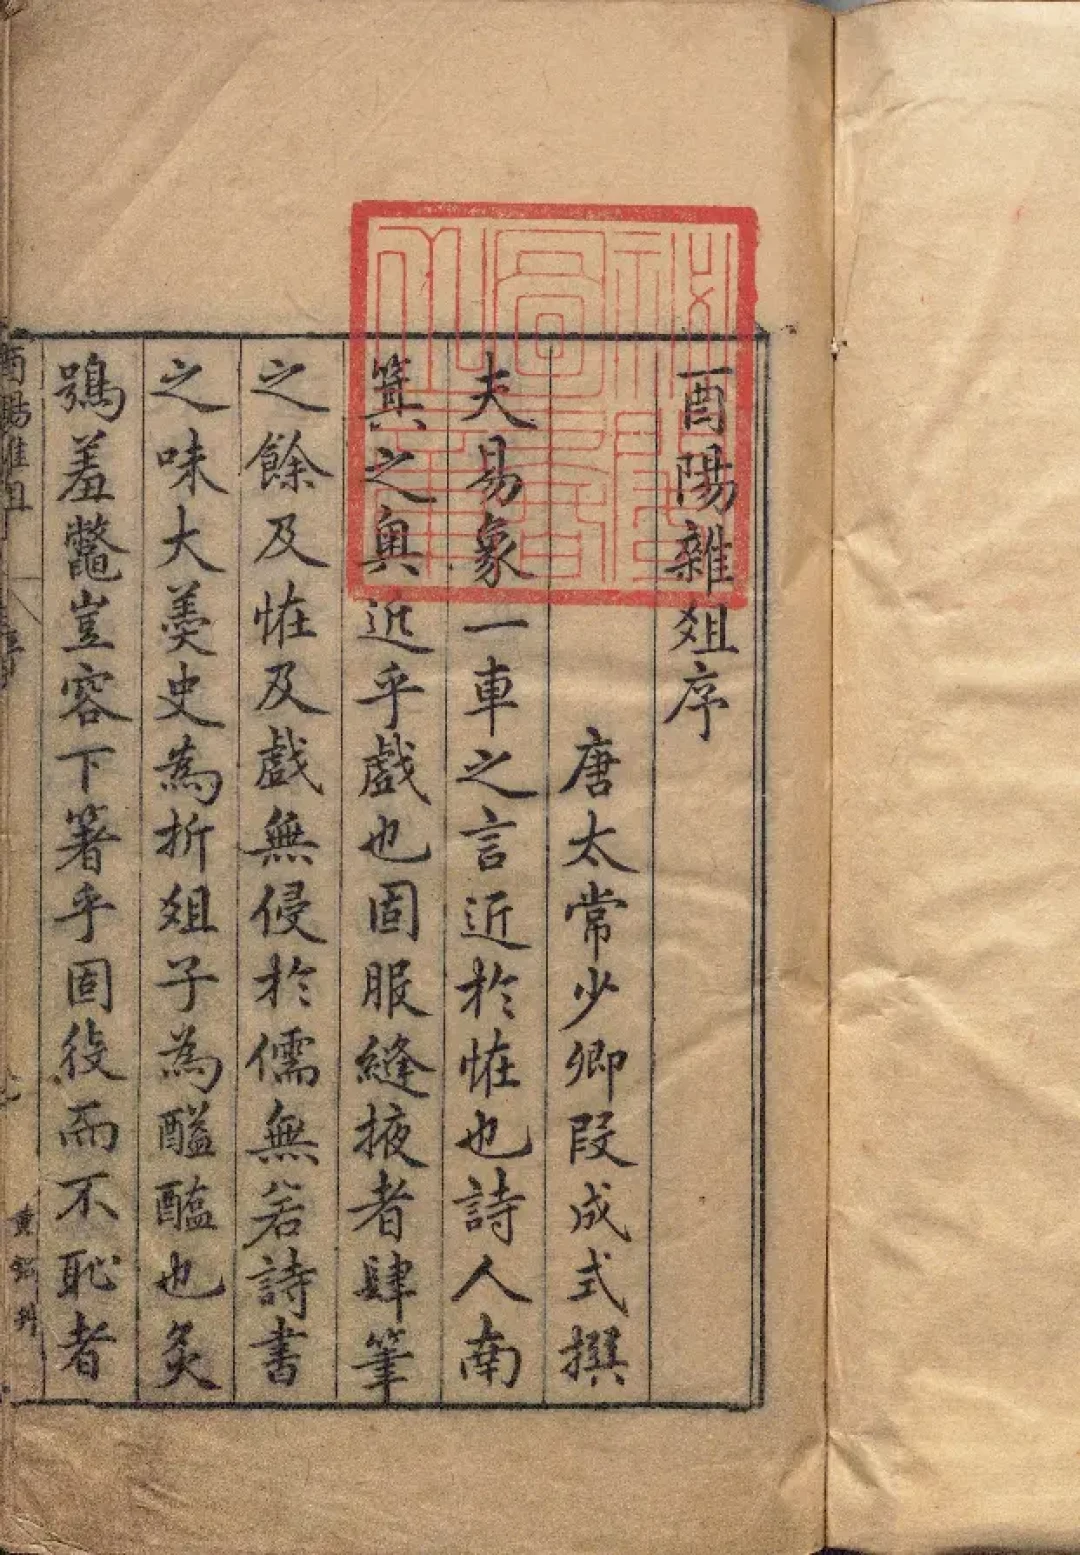 酉陽雜爼序
唐太常少卿段成式撰
夫易象一車之言近於恠也詩人南
箕之奥近乎戲也固服縫掖者肆筆
之餘及恠及戲無侵於儒無若詩書
之味大羹史為折爼子為醯醢也炙
鴞羞鼈豈容下箸乎固役而不恥者
酉陽雜爼